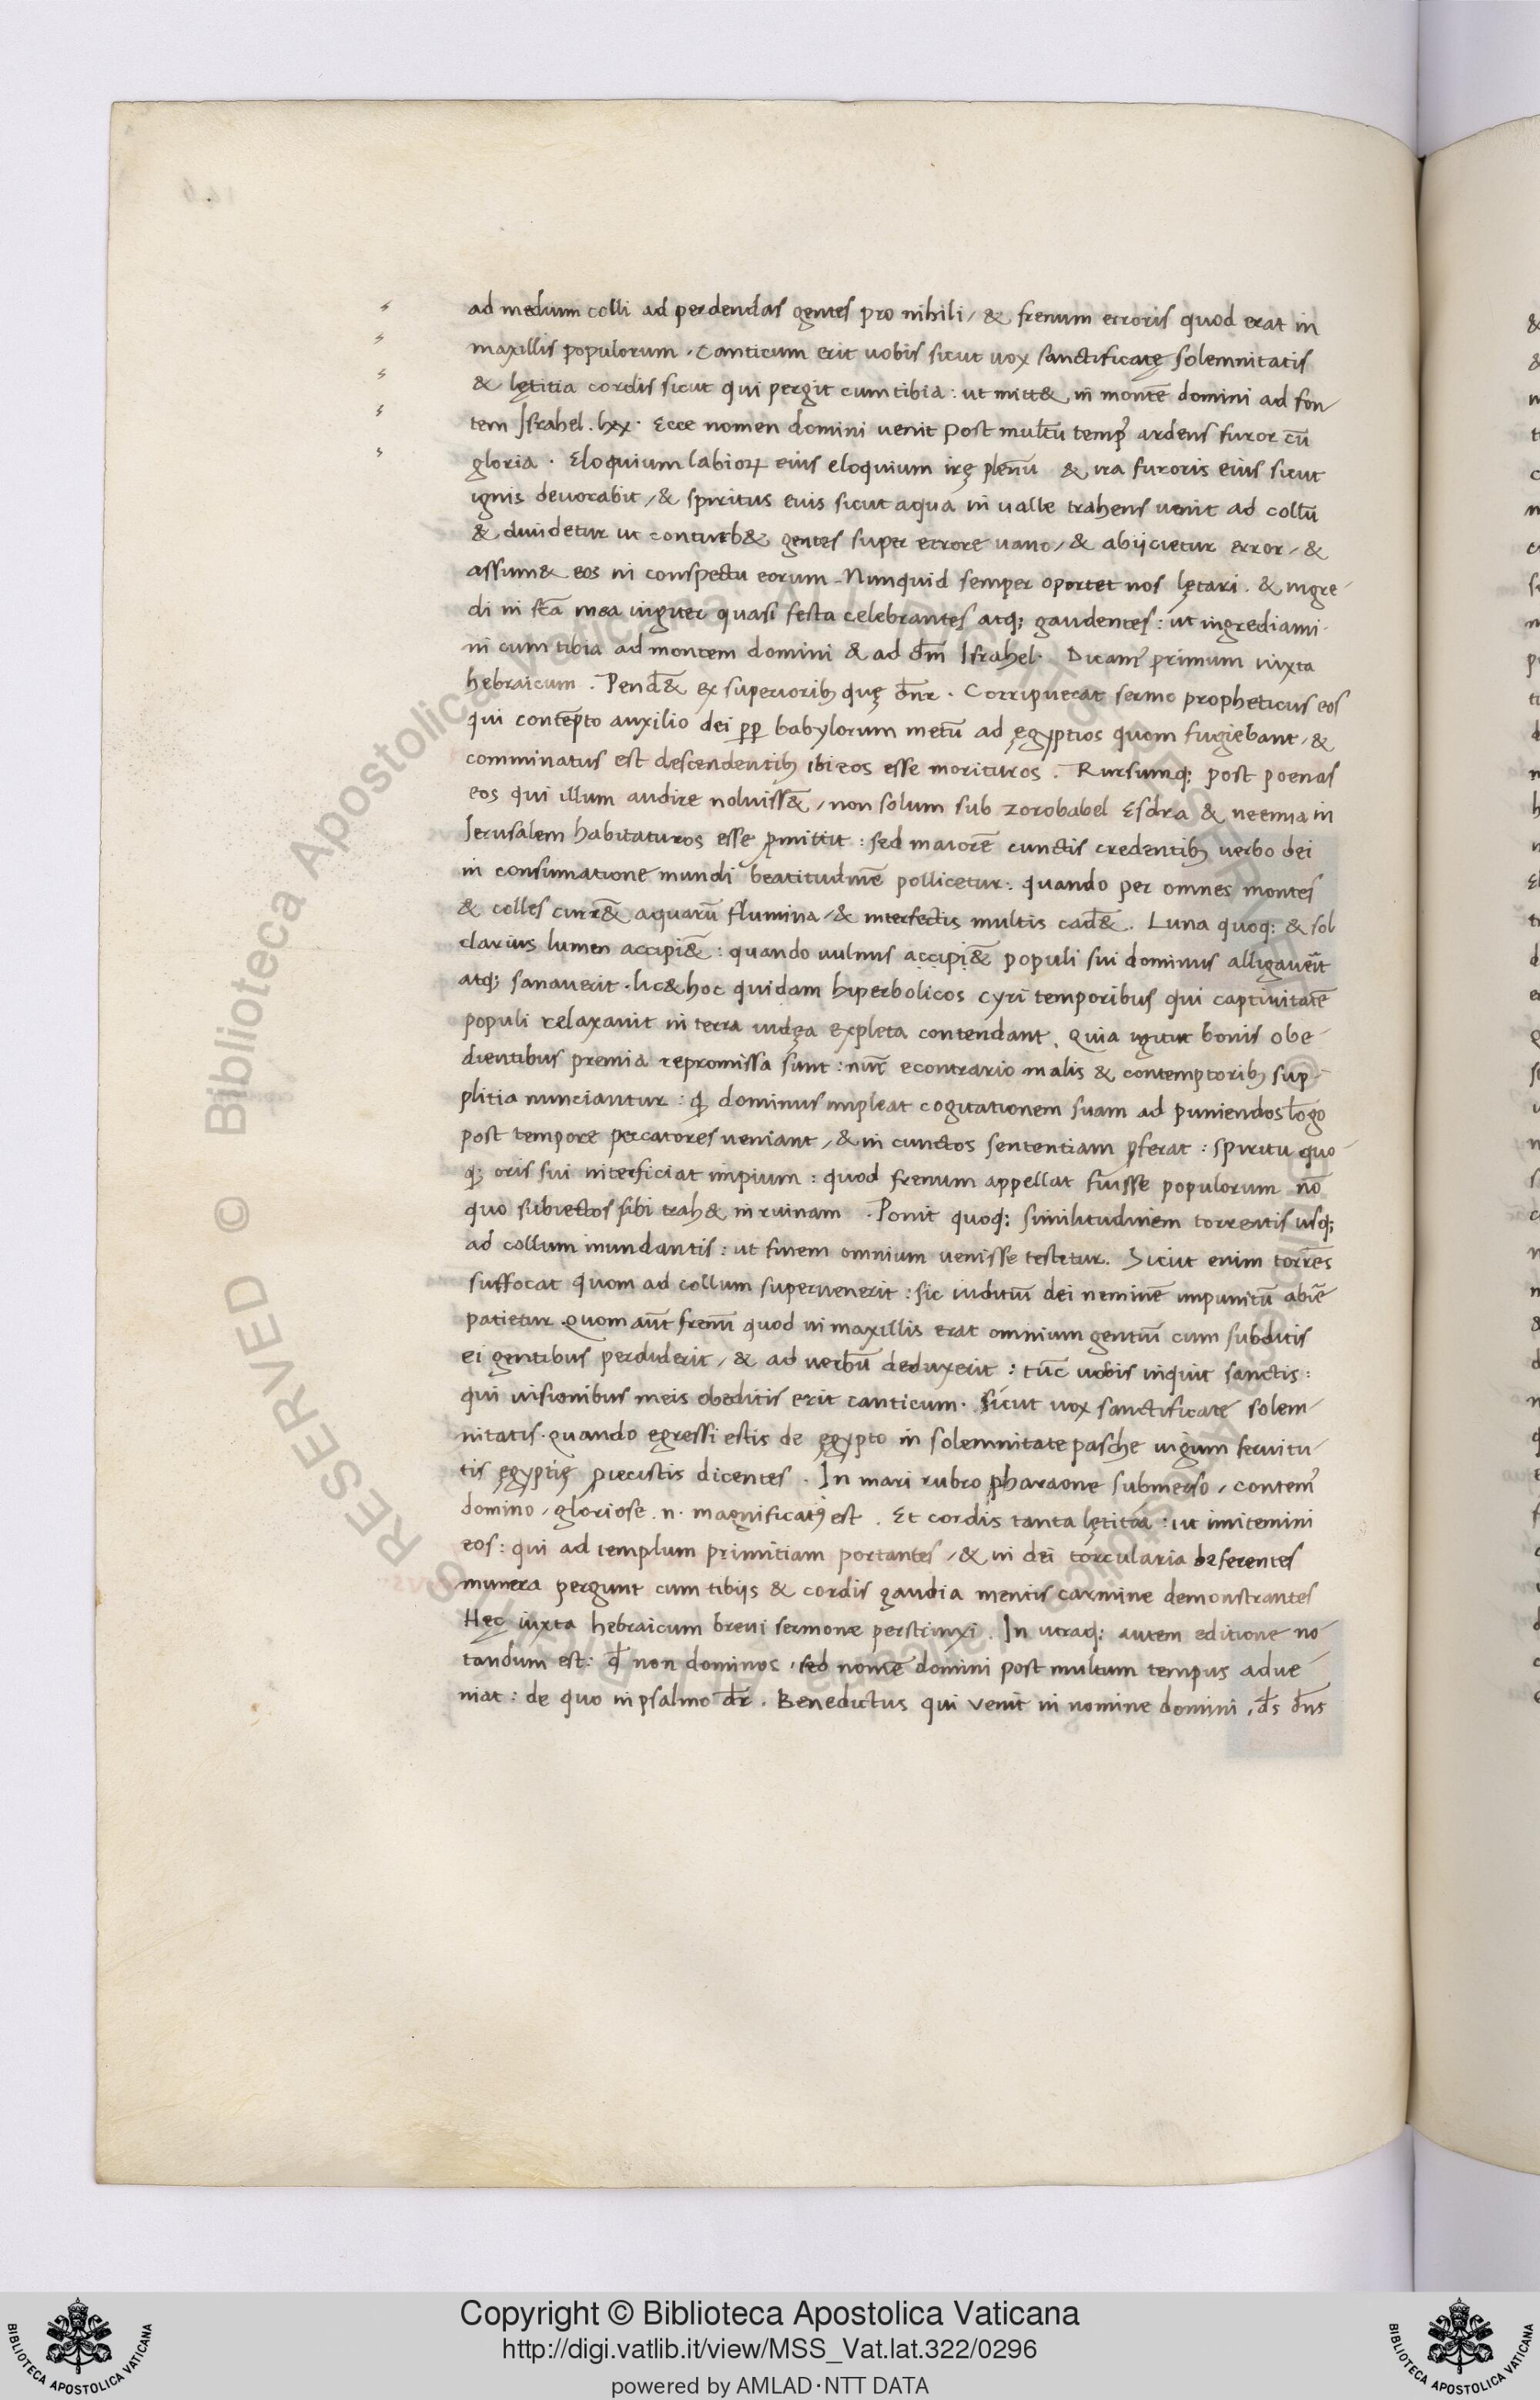 ad medium colli ad perdendas gentes pro nihili / & frenum erroris quod erat in
maxillis populorum . Canticum erit uobis sicut uox sanctificatę solemnitatis
& lętitia cordis sicut qui pergit cum tibia : ut mitt& in montē domini ad fon-
tem Israhel . lxx . Ecce nomen domini uenit post multū tempꝰ ardens furor cū
gloria . Eloquium labioꝝ eius eloquium irę plenū & ira furoris eius sicut
ignis deuorabit / & spiritus euis sicut aqua in ualle trahens uenit ad collū
& diuidetur ut conturb& gentes super errore uano / & abijcietur error / &
assum& eos in conspectu eorum . Nunquid semper oportet uos lętari . & ingre-
di in sc̄a mea iugiter quasi festa celebrantes atq; gaudentes : ut ingrediami-
ni cum tibia ad montem domini & ad dm̄ Israhel . Dicamꝰ primum iuxta
hebraicum . Pend&̄ ex superioribꝫ quę dn̄r . Corripuerat sermo propheticus eos
qui contēpto auxilio dei ꝑꝑ babylorum metū ad ęgyptios quom fugiebant / &
comminatus est descendentibꝫ ibi eos esse morituros . Rursumq; post poenas
eos qui illum audire noluiss&̄ / non solum sub zorobabel Esdra & neemia in
Jerusalem habitaturos esse ꝓmittit : sed maiorē cunctis credentibꝫ uerbo dei
in consumatione mundi beatitudinē pollicetur . quando per omnes montes
& colles curr&̄ aquarū flumina / & interfectis multis cad&̄ . Luna quoq; & sol
clarius lumen accipi&̄ : quando uulnus accipi&̄ populi sui dominus alligauerīt
atq; sanauerit . lic& hoc quidam hiperbolicos cyri temporibus qui captiuitatē
populi relaxauit in terra iudęa expleta contendant . Quia igitur bonis obe-
dientibus premia repromissa sunt : nūc econtrario malis & contemptoribꝫ sup-
plitia nunciantur : ꝙ dominus impleat cogitationem suam ad puniendos lōgo
post tempore percatores ueniant / & in cunctos sententiam ꝓferat : spiritu quo-
q; oris sui interficiat impium : quod frenum appellat fuisse populorum nō
quo subiectos sibi trah& in ruinam . Ponit quoq; similitudinem torrentis usq;
ad collum inundantis : ut finem omnium uenisse testetur . Sicut enim torrēs
suffocat quom ad collum superuenerit : sic iuditiū dei neminē impunitū abiē
patietur . Quom aūt frenū quod in maxillis erat omnium gentiū cum subditis
ei gentibus perdiderit / & ad uerbū deduxerit : tūc uobis inquit sanctis :
qui uisionibus meis obeditis erit canticum . Sicut uox sanctificate solem-
nitatis . quando egressi estis de ęgypto in solemnitate pasche iugum seruitu-
tis ęgyptię dicentes . In mari rubro pharaone submerso / contemꝰ
domino / gloriose . n . magnificatꝰ est . Et cordis tanta lętitia : ut imitemini
eos : qui ad templum primitiam portantes / & in dei torcularia deferentes
munera pergunt cum tibijs & cordis gaudia mentis carmine demonstrantes
Hęc iuxta hebraicum breui sermone perstrinxi . In utraq; autem editione no-
tandum est : ꝙ non dominos / sed nomē domini post multum tempus adue-
niat : de quo in psalmo dr̄ . Benedictus qui uenit in nomine domini , ds̄ dn̄s
Copyright © Biblioteca Apostolica Vaticana
http://digi.vatlib.it/view/MSS_Vat.lat.322/0296
powered by AMLAD·NTT DATA
BIBLIOTECA APOSTOLICA VATICANA
BIBLIOTECA APOSTOLICA VATICANA